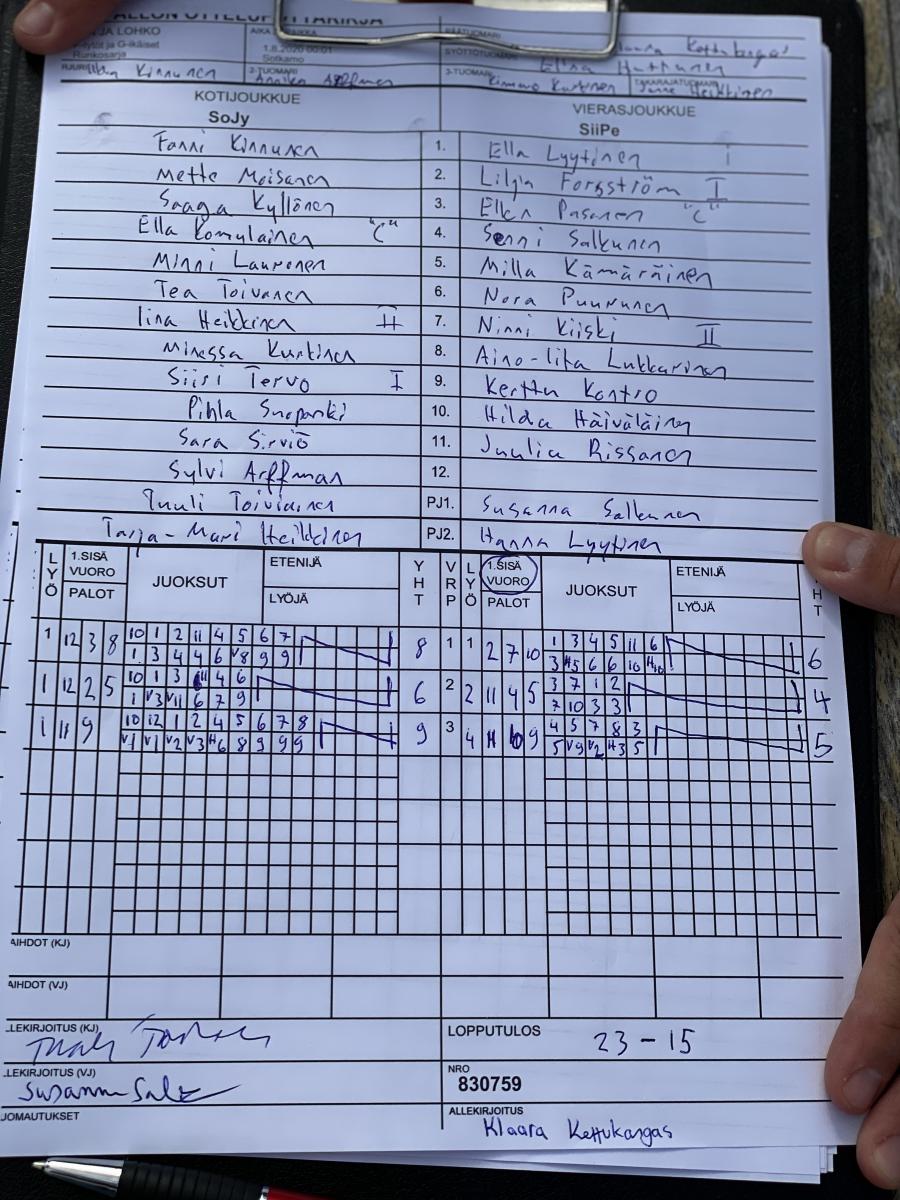 PALLON OTTELUPÖYTÄKIRJA
JA LOHKO
Tytöt ja G-ikäiset
Runkosarja
1.8.2020 00:01
Sotkamo
SYÖTTÖTUOMARI
Kinnunen
2-TUOMARI
Annika Arffman
3-TUOMARI
TAKARAJATUOMARI
Heikkinen
KOTIJOUKKUE
SoJy
VIERASJOUKKUE
SiiPe
Fanni Kinnunen 1. Ella Lyytinen
Mette Moisanen 2. Lilja Forsström I
Saaga Kyllönen 3. Ellen Pasanen "C"
Ella Komulainen "C" 4. Senni Salkunen
Minni Lauronen 5. Milla Kämäräinen
Tea Toivanen 6. Nora Puurunen
Iina Heikkinen II 7. Ninni Kiiski II
Minessa Kurkinen 8. Aino-Iita Lukkarinen
Siiri Tervo I 9. Kerttu Kontro
Pihla 10. Hilda Häiväläinen
Sara Sirviö 11. Juulia Rissanen
Sylvi Arffman 12.
Tuuli Toiviainen PJ1. Susanna Salkunen
Tarja-Mari Heikkinen PJ2. Hanna Lyytinen
LYÖ 1.SISÄ VUORO PALOT JUOKSUT ETENIJÄ LYÖJÄ YHT VRP LYÖ 1.SISÄ VUORO PALOT JUOKSUT ETENIJÄ LYÖJÄ YHT
1 12 3 8 10 1 2 11 4 5 6 7 8 1 1 2 7 10 1 3 4 5 11 6 6
1 3 4 4 6 V8 9 9 3 H5 6 6 10 H10
1 12 2 5 10 1 3 11 4 6 6 2 2 11 4 5 3 7 1 2 4
1 V3 V11 6 7 9 7 10 3 3
1 11 9 10 12 1 2 4 5 6 7 8 9 3 4 9 4 5 7 8 3 5
V1 V1 V2 V3 H6 8 9 9 9 5 V9 V2 H3 5
AIHDOT (KJ)
AIHDOT (VJ)
LEKIRJOITUS (KJ)
LOPPUTULOS
23-15
LEKIRJOITUS (VJ)
NRO
830759
JOMAUTUKSET
ALLEKIRJOITUS
Klaara Kettukangas